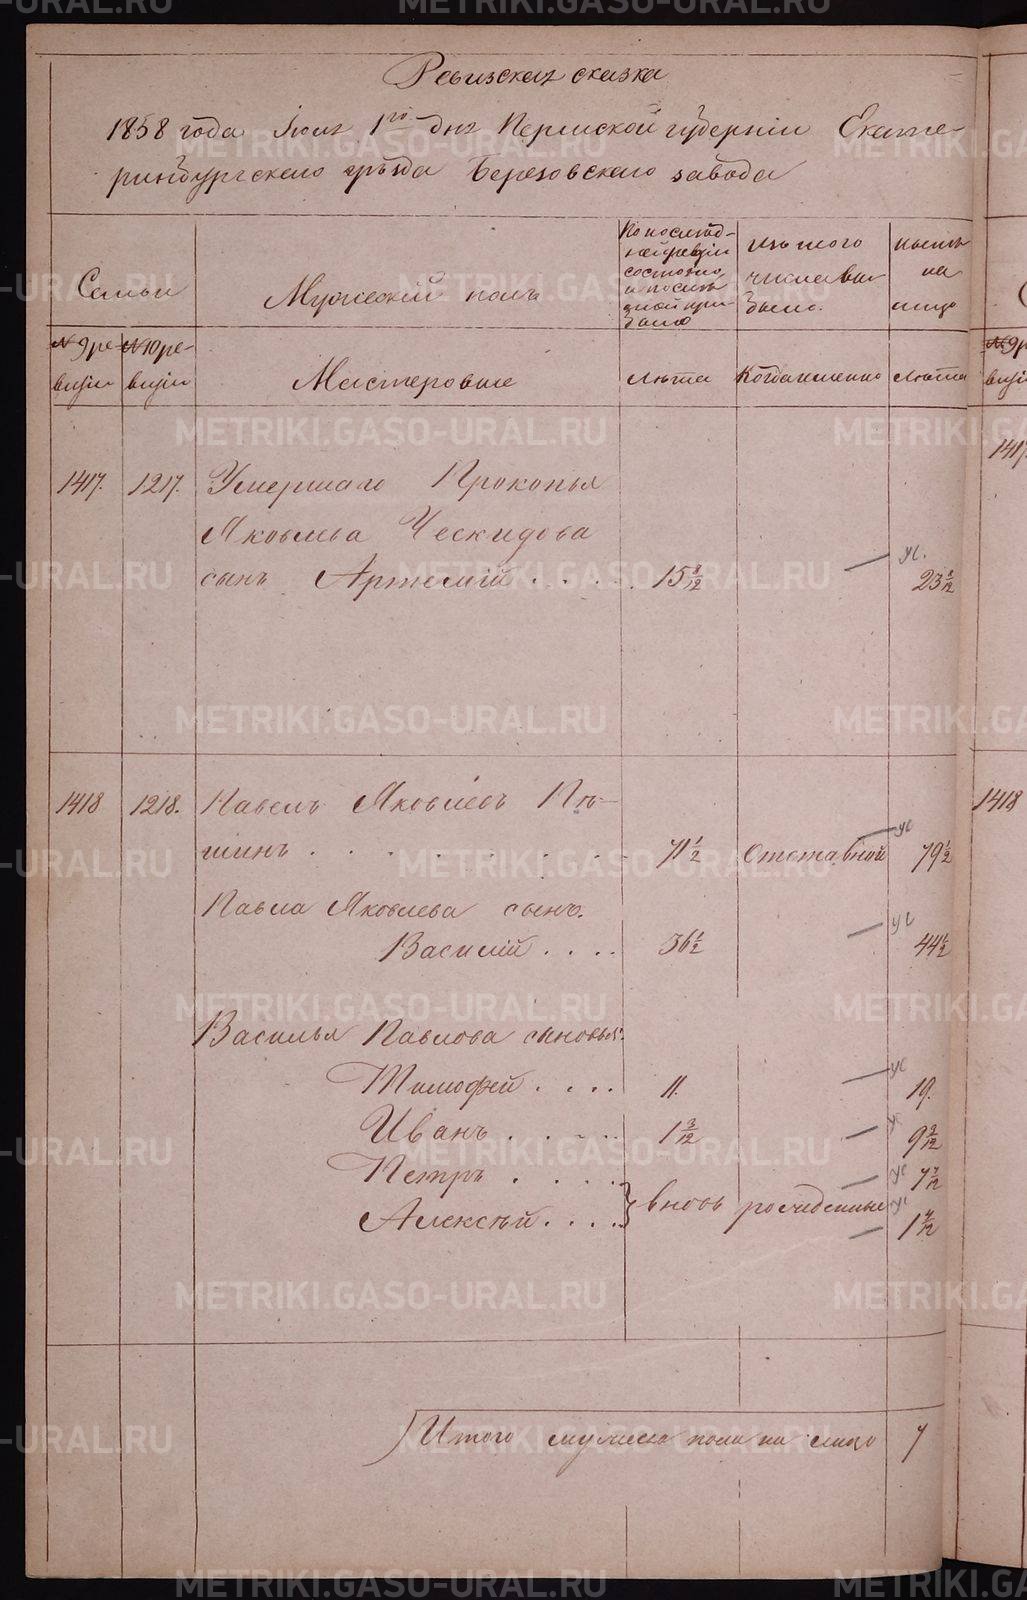 Ревизская сказка
1858 года Іюля 1го дня Пермской губерніи Екате-
ринбургскаго уѣзда Березовскаго завода
Семьи
Мужескій полъ
По послѣд-
ней ревизіи
состояло
и послѣ
оной при-
было
Изъ того
числа вы-
было.
Нынѣ
на
лицо
№ 9 ре-
визіи
№ 10 ре-
визіи
Мастеровые
Лѣта
Когда именно
Лѣта
1417.
1217.
Умершаго Прокопья
Яковлева Ческидова
сынъ Артемій . . . . 15 8/12 23 8/12
1418
1218.
Павелъ Яковлевъ Пѣ-
шинъ . . . . . . . 71 1/2 Отставной 79 1/2
Павла Яковлева сынъ.
Василій . . . . 36 1/2 44 1/2
Василья Павлова сыновья:
Тимофей . . . . 11. 19.
Иванъ . . . . . 1 3/12 9 3/12
Петръ . . . . . 7 7/12
Алексѣй . . . . вновь рожденные 1 7/12
Итого мужеска пола на лицо 7
1417.
1418
METRIKI.GASO-URAL.RU